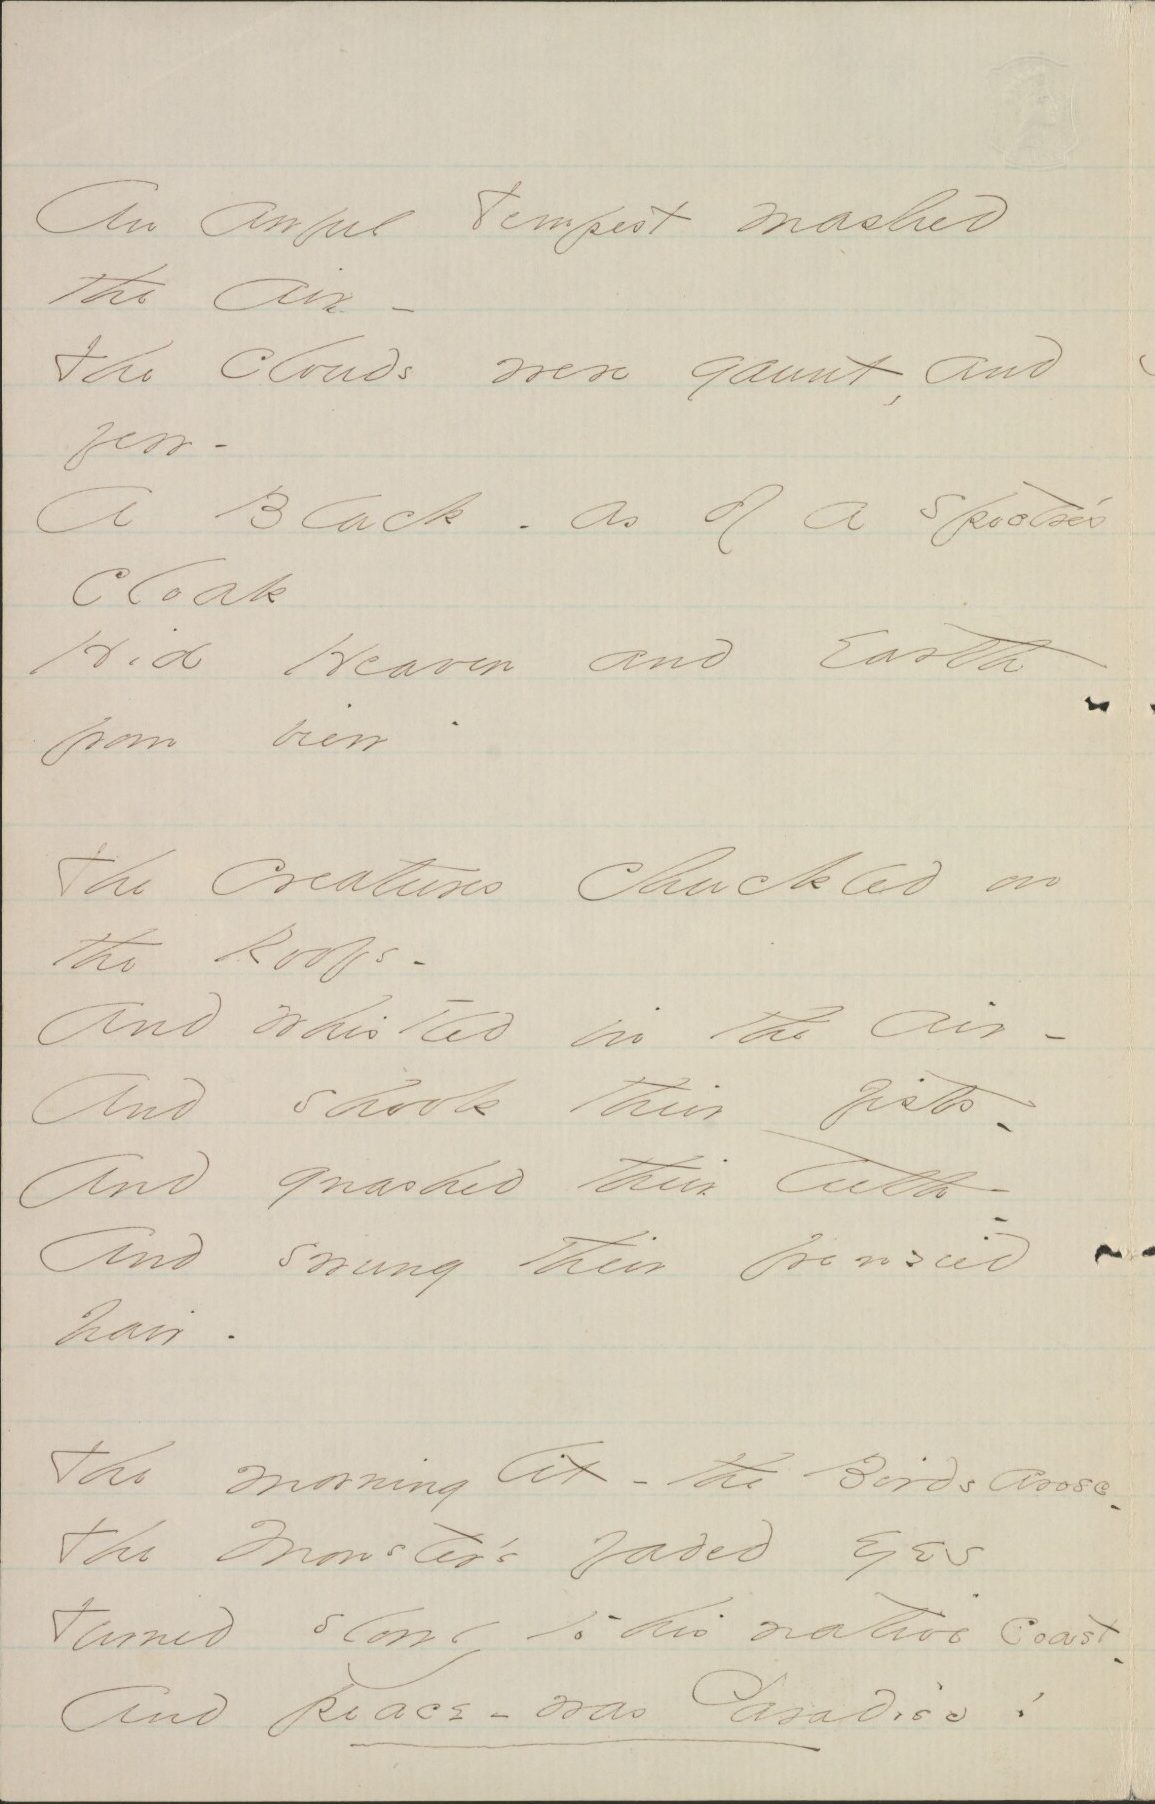 An awful Tempest mashed
the air -
The clouds were gaunt, and
few -
A Black - as of a spectre's
cloak
Hid Heaven and Earth
from view -
The creatures chuckled on
the Roofs -
And whistled in the air -
And shook their fists -
And gnashed their teeth -
And swung their frenzied
hair -
The morning lit - the Birds arose -
The Monster's faded eyes
Turned slowly to his native coast -
And peace - was Paradise!